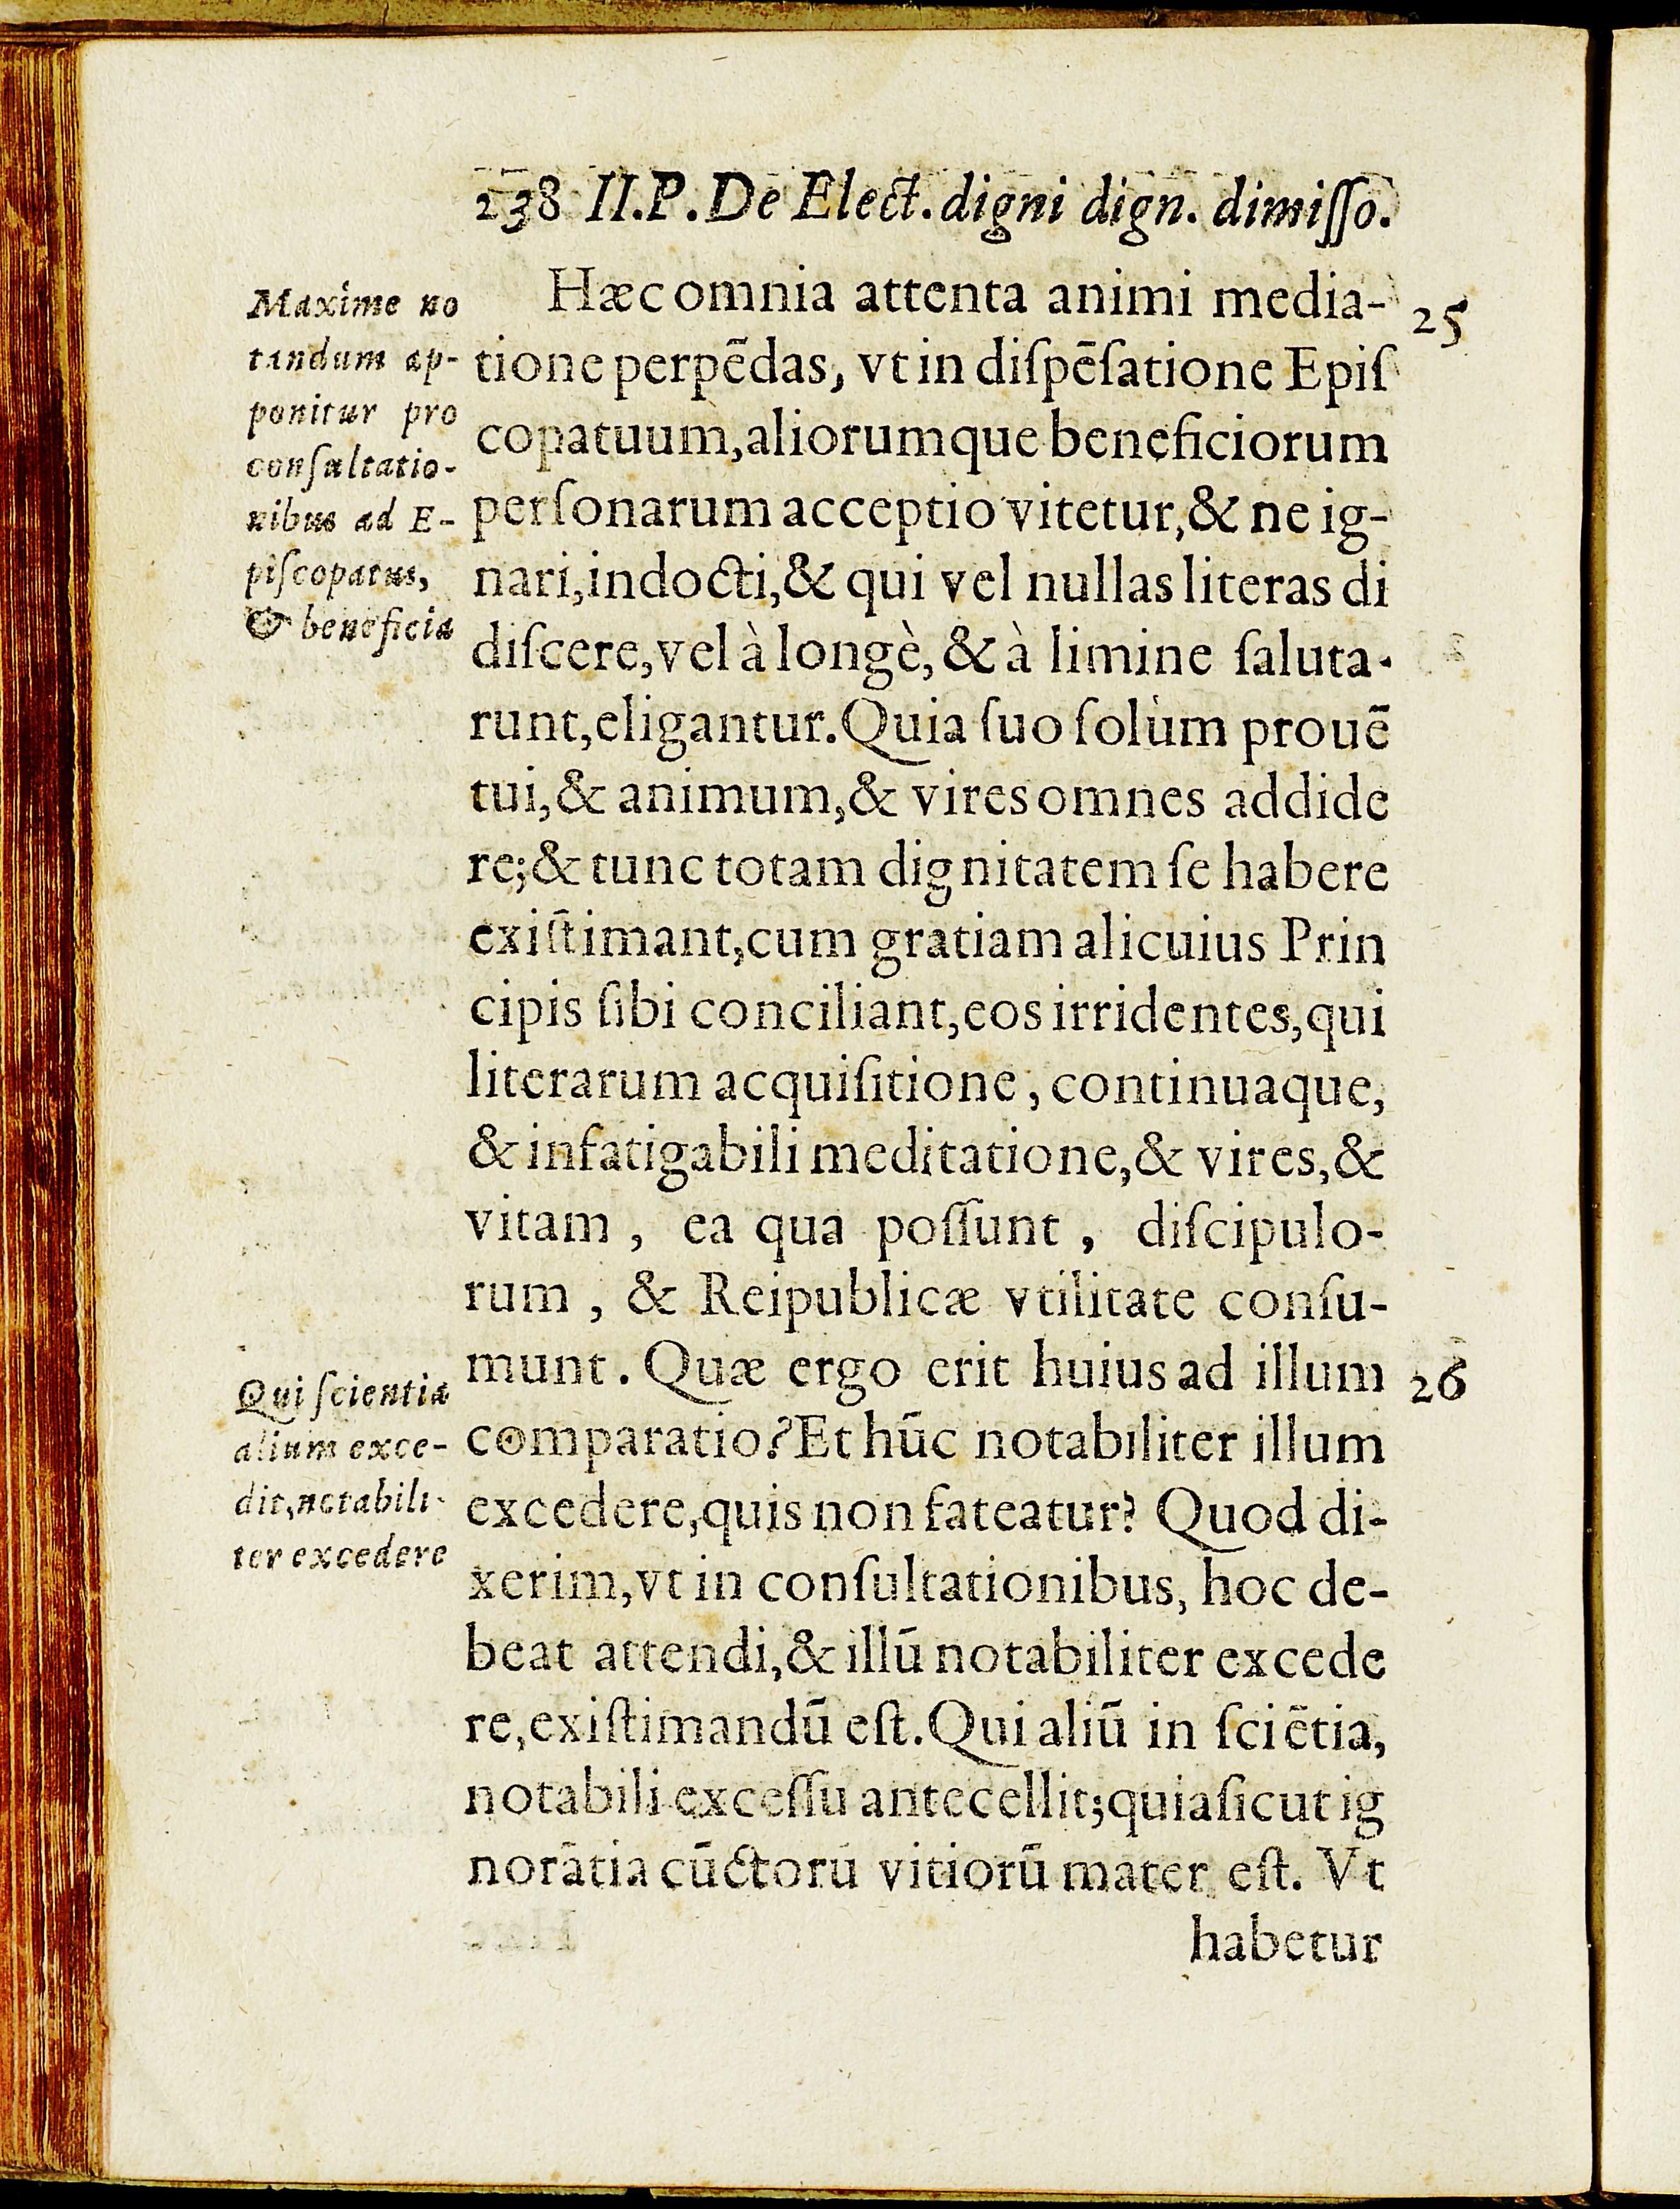 238 II.P. De Elect. digni dign. dimiſſo.
Maxime no
tandum ap-
ponitur pro
conſultatio-
nibus ad E-
piſcopatus,
& beneficia
Hæc omnia attenta animi media- 25
tione perpēdas, vt in diſpēſatione Epiſ
copatuum, aliorumque beneficiorum
perſonarum acceptio vitetur, & ne ig-
nari, indocti, & qui vel nullas literas di
diſcere, vel à longè, & à limine ſaluta-
runt, eligantur. Quia ſuo ſolùm prouē
tui, & animum, & vires omnes addide
re; & tunc totam dignitatem ſe habere
exiſtimant, cum gratiam alicuius Prin
cipis ſibi conciliant, eos irridentes, qui
literarum acquiſitione, continuaque,
& infatigabili meditatione, & vires, &
vitam, ea qua poſſunt, diſcipulo-
rum, & Reipublicæ vtilitate conſu-
munt. Quæ ergo erit huius ad illum 26
Qui ſcientia
alium exce-
dit, notabili-
ter excedere
comparatio? Et hūc notabiliter illum
excedere, quis non fateatur? Quod di-
xerim, vt in conſultationibus, hoc de-
beat attendi, & illū notabiliter excede
re, exiſtimandū eſt. Qui aliū in ſciētia,
notabili exceſſu antecellit; quia ſicut ig
norātia cūctorū vitiorū mater eſt. Vt
habetur